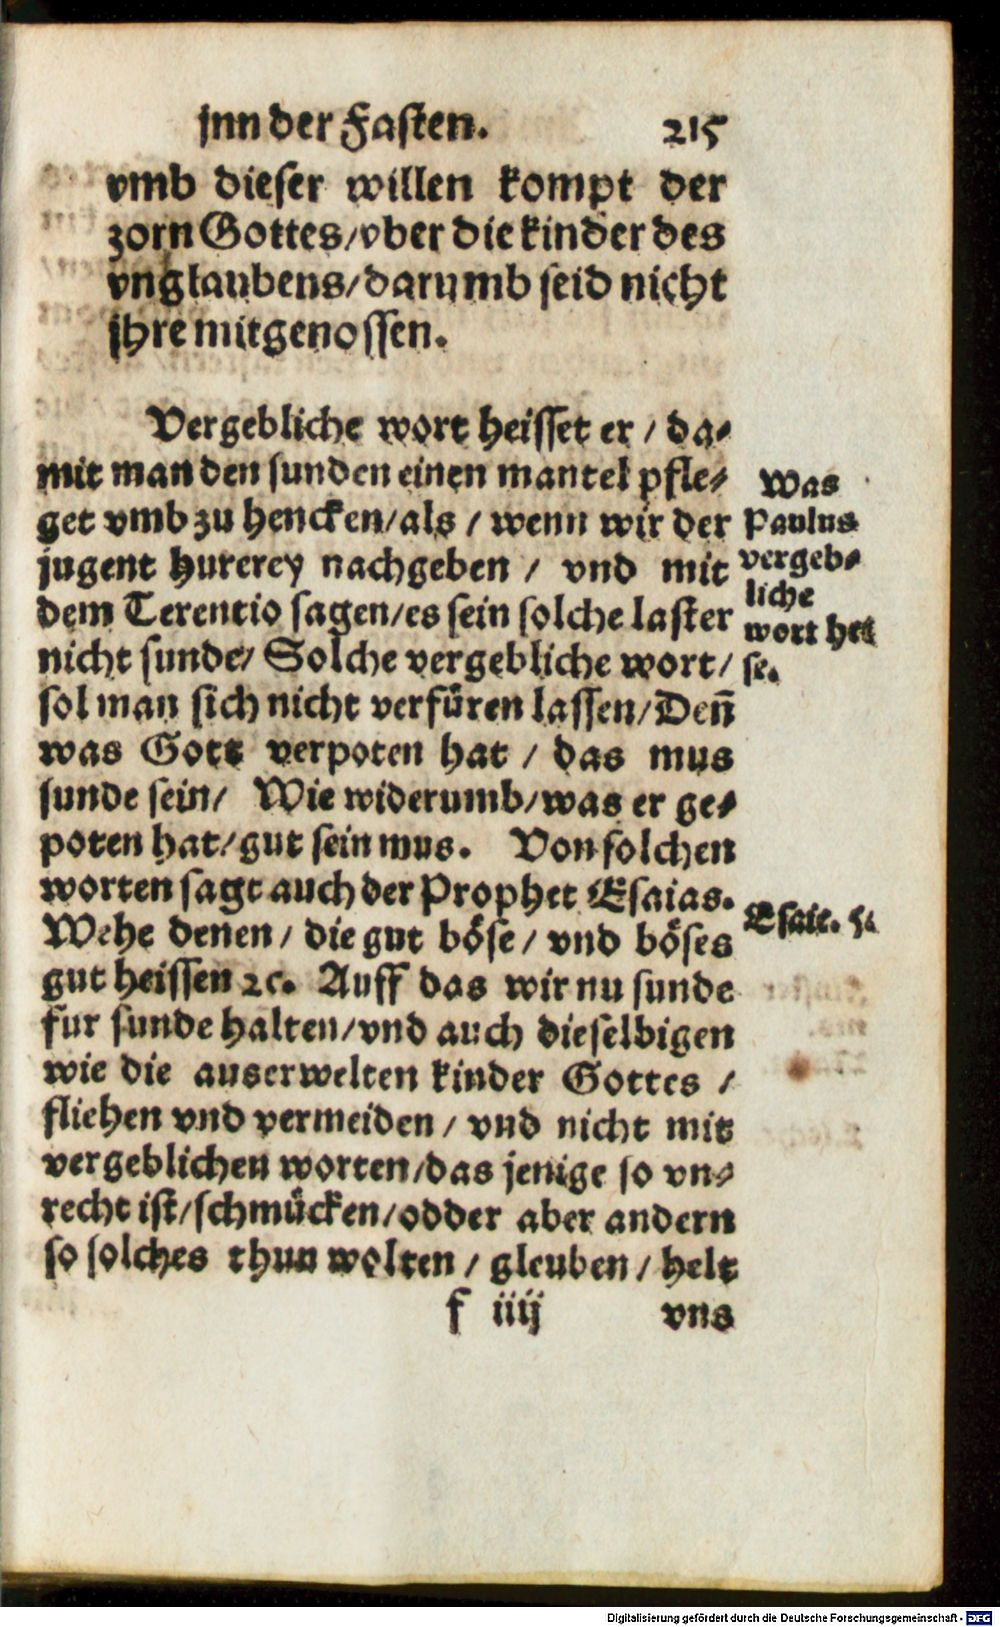 jnn der Fasten. 215
vmb dieser willen kompt der
zorn Gottes/vber die kinder des
vnglaubens/darumb seid nicht
jhre mitgenossen.
Vergebliche wort heisset er / da⸗
mit man den sunden einen mantel pfle⸗
get vmb zu hencken/als / wenn wir der
jugent hurerey nachgeben / vnd mit
dem Terentio sagen/es sein solche laster
nicht sunde/ Solche vergebliche wort/
sol man sich nicht verfüren lassen/Deñ
was Gott verpoten hat / das mus
sunde sein/ Wie widerumb/was er ge⸗
poten hat/gut sein mus. Von solchen
worten sagt auch der Prophet Esaias.
Wehe denen/ die gut böse/ vnd böses
gut heissen ꝛc. Auff das wir nu sunde
fur sunde halten/vnd auch dieselbigen
wie die auserwelten kinder Gottes /
fliehen vnd vermeiden/ vnd nicht mit
vergeblichen worten/das jenige so vn⸗
recht ist/schmücken/odder aber andern
so solches thun wolten / gleuben/ helt
f iiij vns
Was
Paulus
vergeb⸗
liche
wort hei
se.
Esaie. 5.
Digitalisierung gefördert durch die Deutsche Forschungsgemeinschaft - DFG